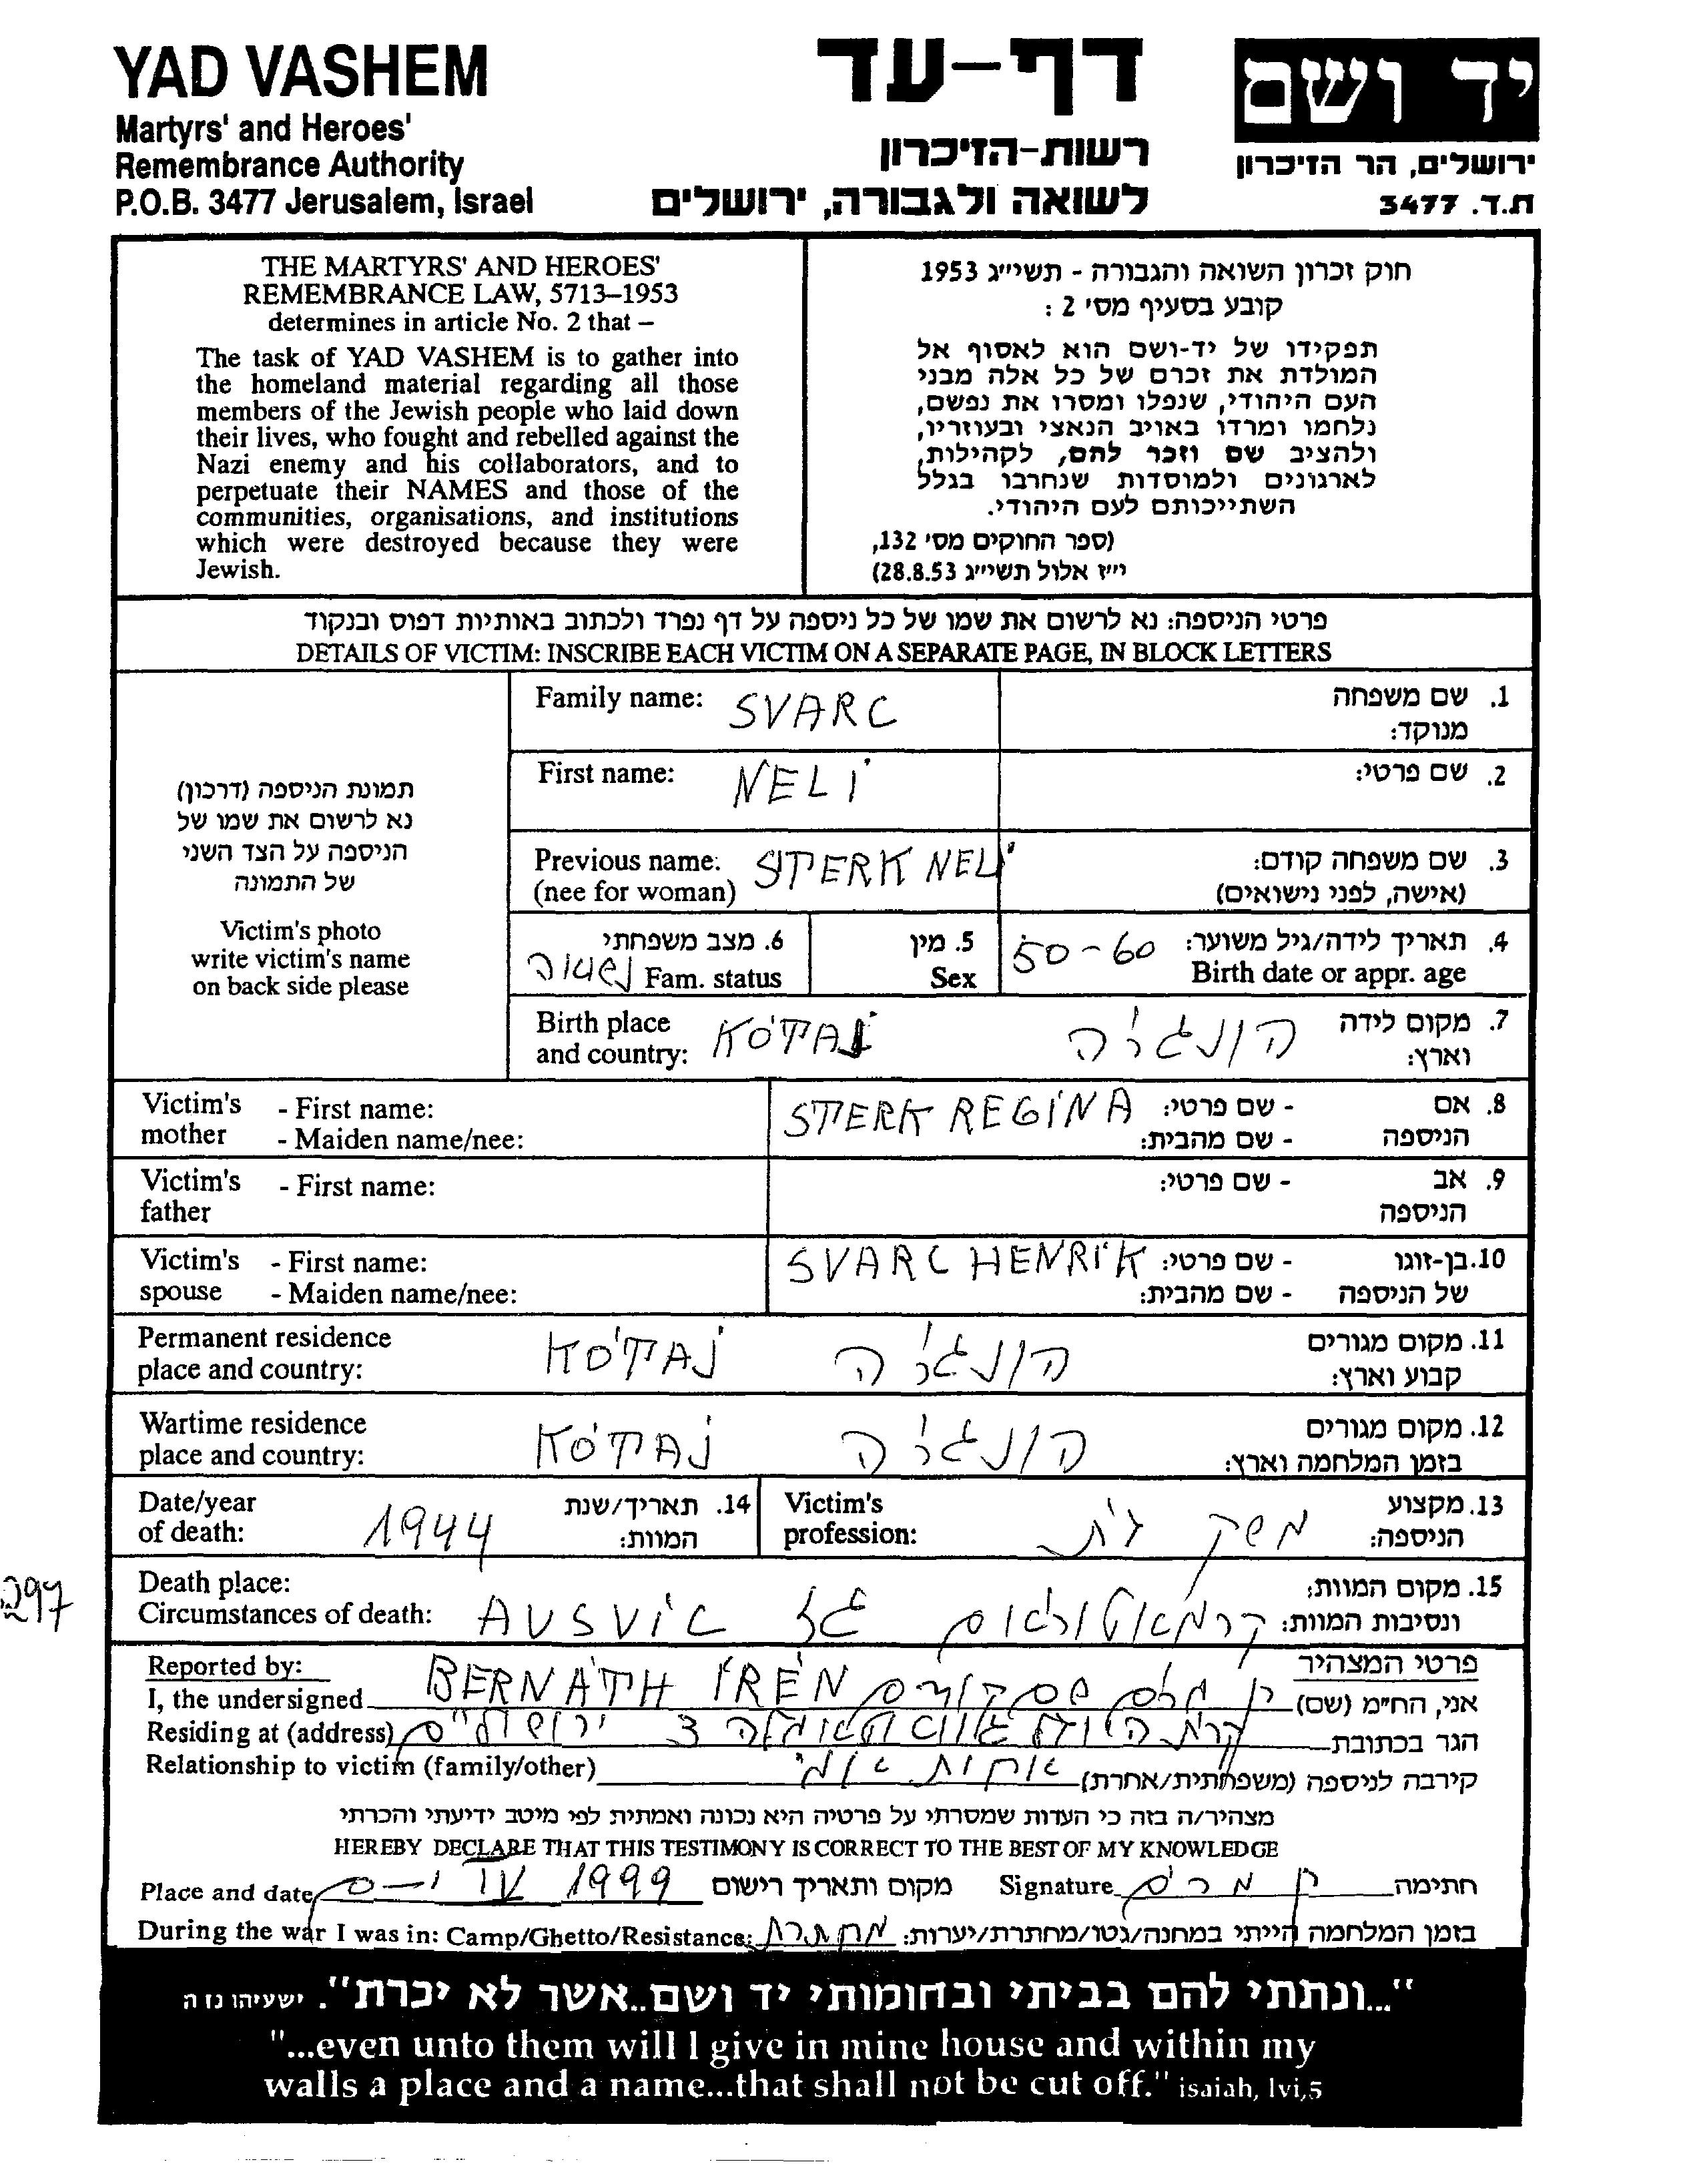 YAD VASHEM
Martyrs' and Heroes'
Remembrance Authority
P.O.B. 3477 Jerusalem, Israel
דף-עד
רשות-הזיכרון
לשואה ולגבורה, ירושלים
יד ושם
ירושלים, הר הזיכרון
ת.ד. 3477
THE MARTYRS' AND HEROES'
REMEMBRANCE LAW, 5713–1953
determines in article No. 2 that –
The task of YAD VASHEM is to gather into
the homeland material regarding all those
members of the Jewish people who laid down
their lives, who fought and rebelled against the
Nazi enemy and his collaborators, and to
perpetuate their NAMES and those of the
communities, organisations, and institutions
which were destroyed because they were
Jewish.
חוק זכרון השואה והגבורה - תשי״ג 1953
קובע בסעיף מס׳ 2 :
תפקידו של יד-ושם הוא לאסוף אל
המולדת את זכרם של כל אלה מבני
העם היהודי, שנפלו ומסרו את נפשם,
נלחמו ומרדו באויב הנאצי ובעוזריו,
ולהציב שם וזכר להם, לקהילות,
לארגונים ולמוסדות שנחרבו בגלל
השתייכותם לעם היהודי.
(ספר החוקים מס׳ 132,
י״ז אלול תשי״ג 28.8.53)
פרטי הניספה: נא לרשום את שמו של כל ניספה על דף נפרד ולכתוב באותיות דפוס ובנקוד
DETAILS OF VICTIM: INSCRIBE EACH VICTIM ON A SEPARATE PAGE, IN BLOCK LETTERS
תמונת הניספה (דרכון)
נא לרשום את שמו של
הניספה על הצד השני
של התמונה
Victim's photo
write victim's name
on back side please
Family name: SVARC 1. שם משפחה
מנוקד:
First name: NELI 2. שם פרטי:
Previous name: STERK NELI 3. שם משפחה קודם:
(nee for woman) (אישה, לפני נישואים)
6. מצב משפחתי 5. מין 50-60 4. תאריך לידה/גיל משוער:
נשואה Fam. status Sex Birth date or appr. age
Birth place KÓTAJ הונגריה 7. מקום לידה
and country: וארץ:
Victim's - First name: STERK REGINA - שם פרטי: 8. אם
mother - Maiden name/nee: - שם מהבית: הניספה
Victim's - First name: - שם פרטי: 9. אב
father הניספה
Victim's - First name: SVARC HENRIK - שם פרטי: 10. בן-זוגו
spouse - Maiden name/nee: - שם מהבית: של הניספה
Permanent residence KÓTAJ הונגריה 11. מקום מגורים
place and country: קבוע וארץ:
Wartime residence KÓTAJ הונגריה 12. מקום מגורים
place and country: בזמן המלחמה וארץ:
Date/year 1944 14. תאריך/שנת Victim's משק בית 13. מקצוע
of death: המוות: profession: הניספה:
Death place: 15. מקום המוות:
Circumstances of death: AUSVIC גז קרמאטוריום ונסיבות המוות:
297
Reported by: פרטי המצהיר
I, the undersigned BERNÁTH IRÉN אני, הח״מ (שם)
Residing at (address) 3 ירושלים הגר בכתובת
Relationship to victim (family/other) אחות קירבה לניספה (משפחתית/אחרת)
מצהיר/ה בזה כי העדות שמסרתי על פרטיה היא נכונה ואמתית לפי מיטב ידיעתי והכרתי
HEREBY DECLARE THAT THIS TESTIMONY IS CORRECT TO THE BEST OF MY KNOWLEDGE
Place and date י-ם IV 1999 מקום ותאריך רישום Signature חתימה
During the war I was in: Camp/Ghetto/Resistance: מחתרת בזמן המלחמה הייתי במחנה/גטו/מחתרת/יערות:
"...ונתתי להם בביתי ובחומותי יד ושם..אשר לא יכרת". ישעיהו נז ה
"...even unto them will I give in mine house and within my
walls a place and a name...that shall not be cut off." isaiah, lvi,5